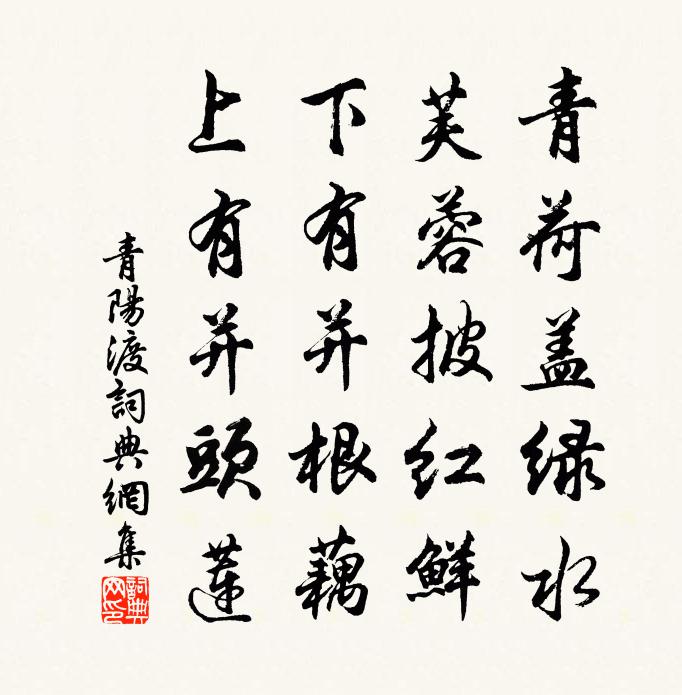 青荷盖绿水
芙蓉披红鲜
下有并根藕
上有并頭蓮
青陽渡詞典網集
詞典网印